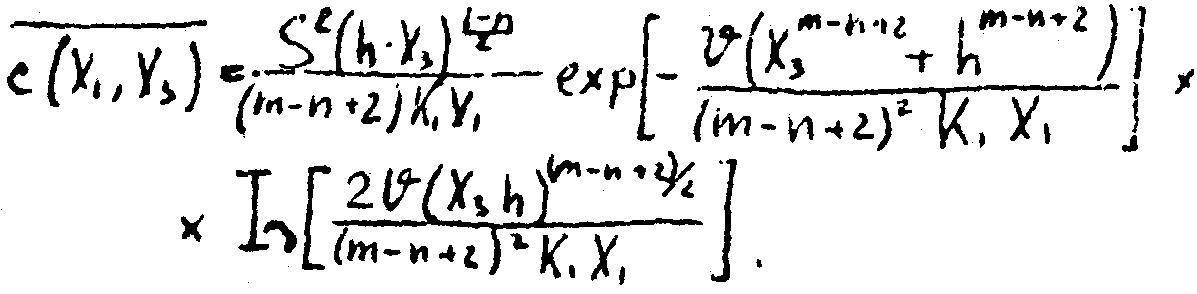 \overline{c(X_1, X_3)} = \frac{S^2 (h \cdot X_3)^{\frac{1-n}{2}}}{(m-n+2) K_1 X_1} exp\left[ - \frac{\vartheta (X_3^{m-n+2} + h^{m-n+2})}{(m-n+2)^2 K_1 X_1} \right] \times
\times I_\nu \left[ \frac{2 \vartheta (X_3 h)^{(m-n+2)/2}}{(m-n+2)^2 K_1 X_1} \right].